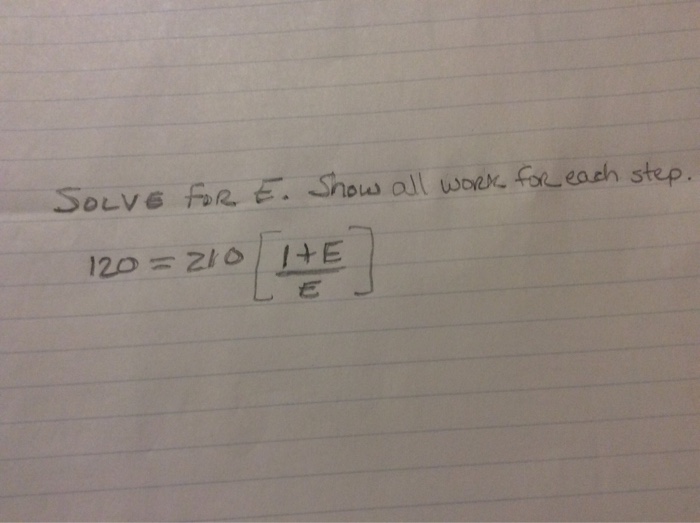 SOLVE FOR E. Show all work for each step.
120 = 210 [ 1+E / E ]